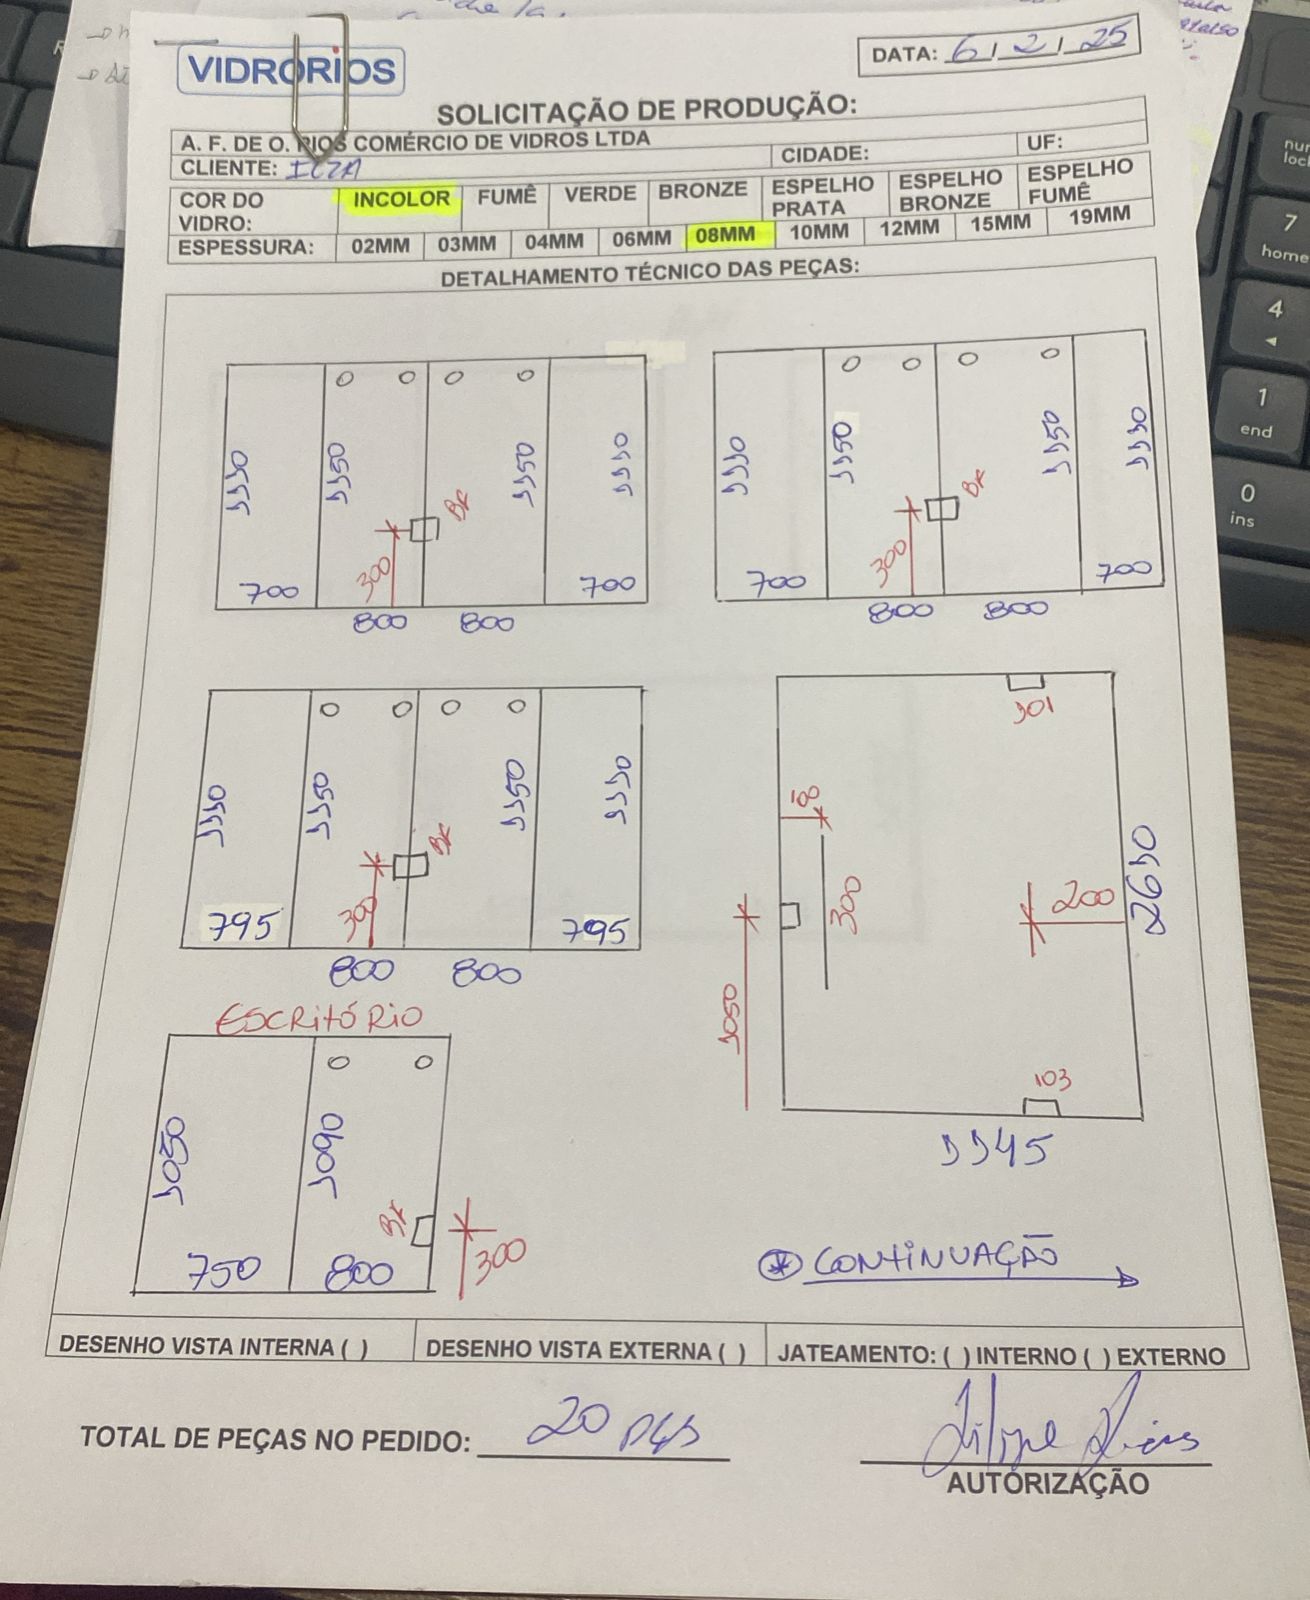 VIDRORIOS
DATA: 6 / 2 / 25
SOLICITAÇÃO DE PRODUÇÃO:
A. F. DE O. RIOS COMÉRCIO DE VIDROS LTDA
CLIENTE: CIDADE: UF:
COR DO VIDRO: INCOLOR FUMÊ VERDE BRONZE ESPELHO PRATA ESPELHO BRONZE ESPELHO FUMÊ
ESPESSURA: 02MM 03MM 04MM 06MM 08MM 10MM 12MM 15MM 19MM
DETALHAMENTO TÉCNICO DAS PEÇAS:
1150 1150
300
700 700
800 800
1150 1150
300
700 700
800 800
1150 1150
300
795 795
800 800
101
300
200
1050
103
1145
ESCRITÓRIO
1050 1090
300
750 800
CONTINUAÇÃO
DESENHO VISTA INTERNA ( ) DESENHO VISTA EXTERNA ( ) JATEAMENTO: ( ) INTERNO ( ) EXTERNO
TOTAL DE PEÇAS NO PEDIDO: 20 pçs
Filipe Rios
AUTORIZAÇÃO
num lock
7 home
4
1 end
0 ins